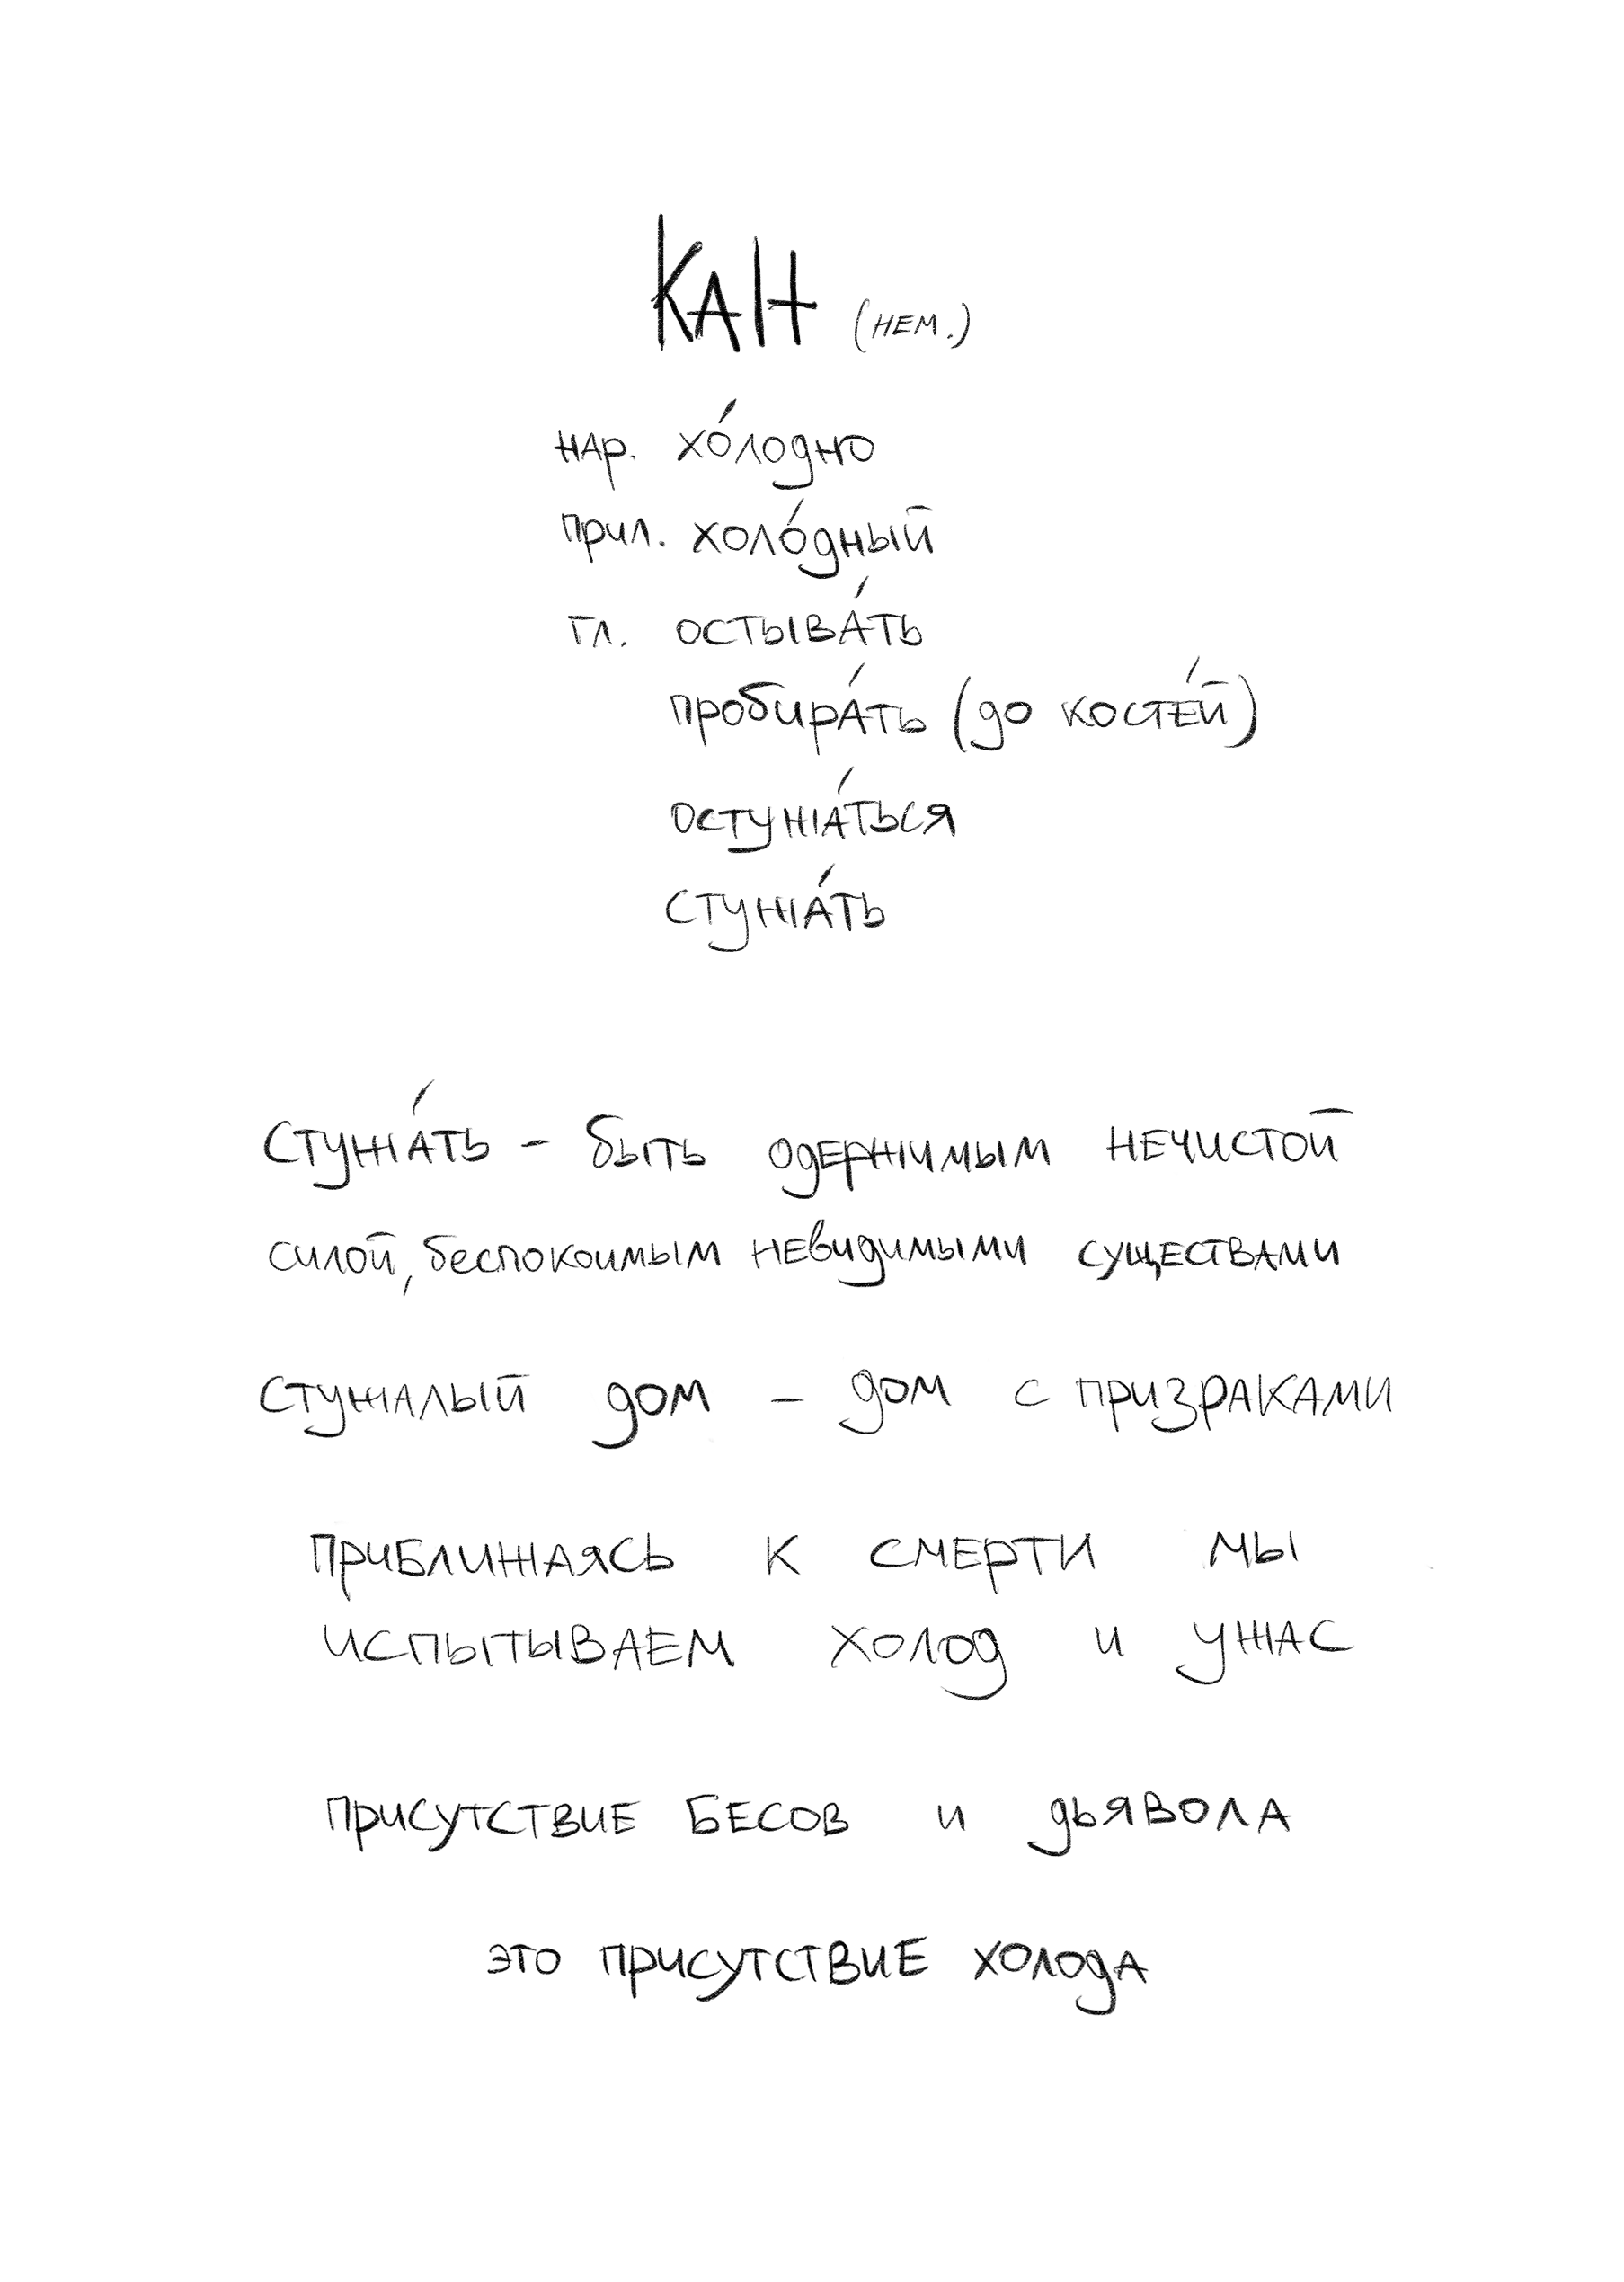 Kalt (нем.)
нар. хо́лодно
прил. холо́дный
гл. остыва́ть
пробира́ть (до косте́й)
остужа́ться
стужа́ть
Стужа́ть - быть одержимым нечистой
силой, беспокоимым невидимыми существами
Стужалый дом - дом с призраками
Приближаясь к смерти мы
испытываем холод и ужас
Присутствие бесов и дьявола
это присутствие холода